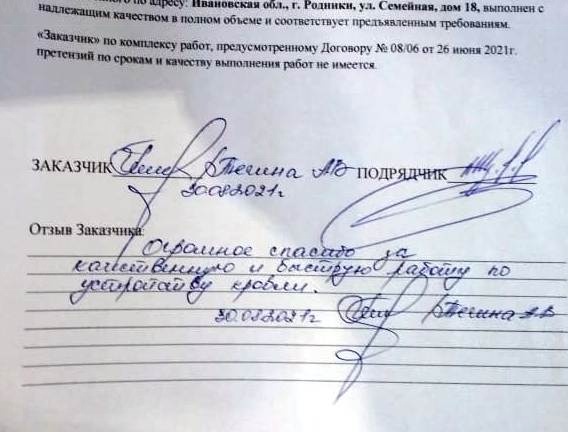 по адресу: Ивановская обл., г. Родники, ул. Семейная, дом 18, выполнен с
надлежащим качеством в полном объеме и соответствует предъявленным требованиям.
«Заказчик» по комплексу работ, предусмотренному Договору № 08/06 от 26 июня 2021г.
претензий по срокам и качеству выполнения работ не имеется.
ЗАКАЗЧИК Тегина АВ ПОДРЯДЧИК
30.08.2021г
Отзыв Заказчика:
Огромное спасибо за
качественную и быструю работу по
устройству кровли.
30.08.2021г. Тегина А.В